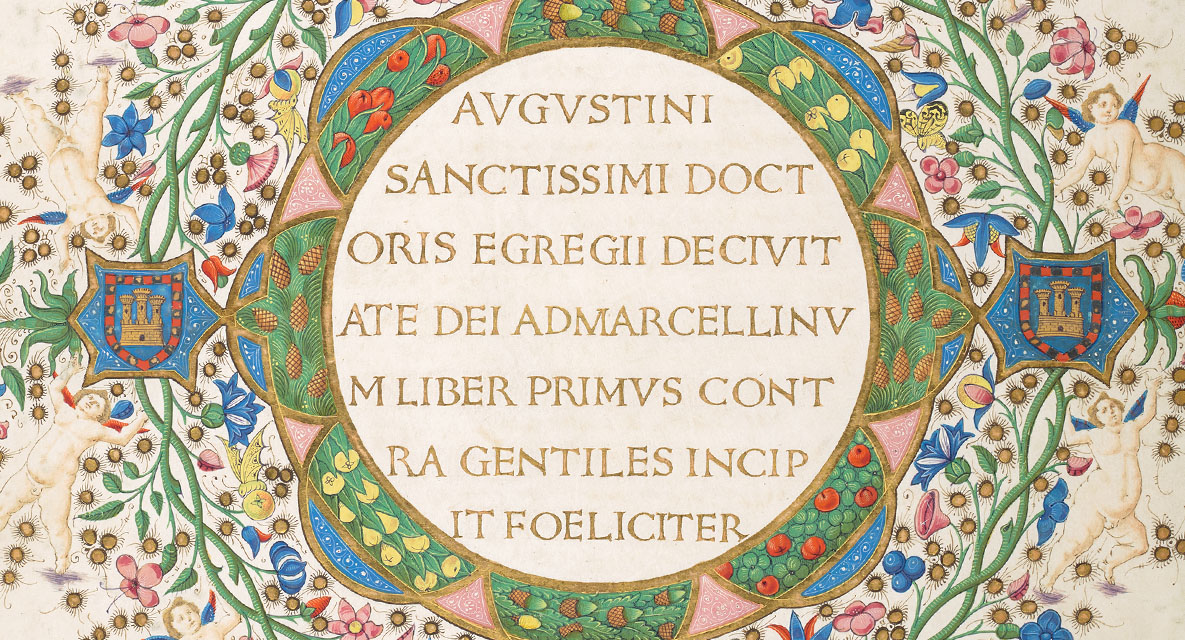 AVGVSTINI
SANCTISSIMI DOCT
ORIS EGREGII DECIVIT
ATE DEI ADMARCELLINV
M LIBER PRIMVS CONT
RA GENTILES INCIP
IT FOELICITER